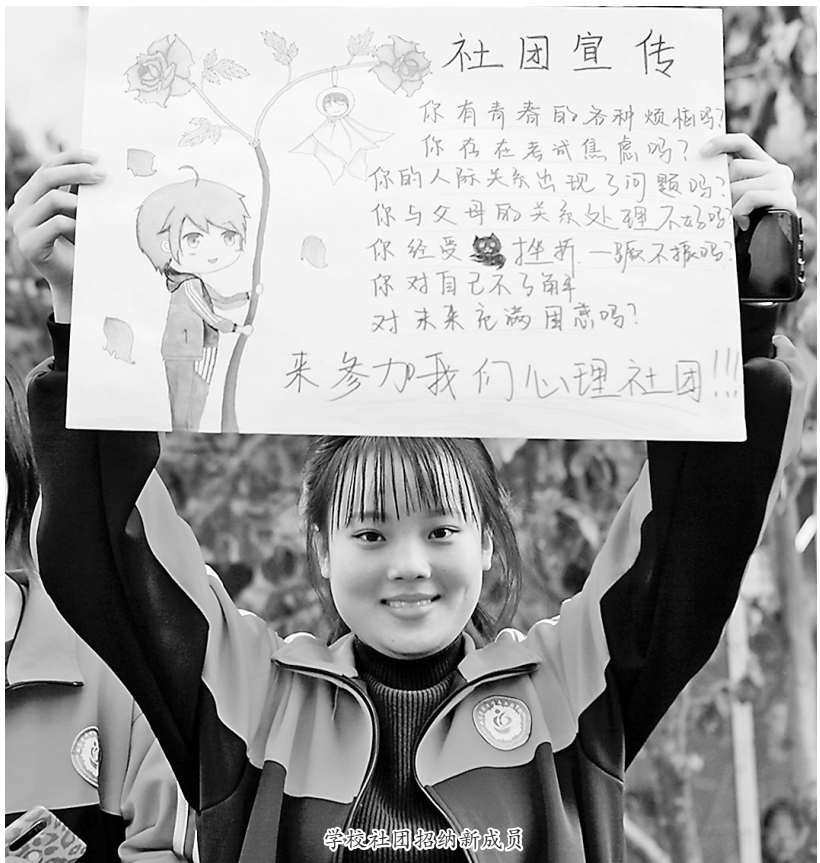 社团宣传
你有青春的各种烦恼吗?
你存在考试焦虑吗?
你的人际关系出现了问题吗?
你与父母的关系处理不好吗
你经受挫折一蹶不振吗?
你对自己不了解
对未来充满困惑吗?
来参加我们心理社团!!!
1
学校社团招纳新成员